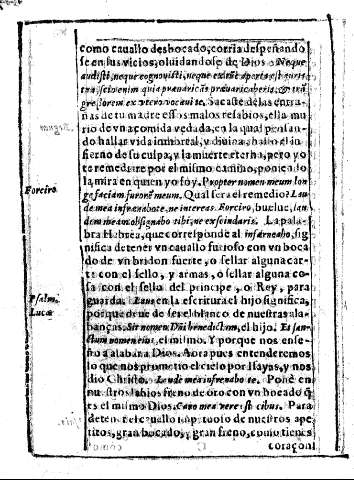 como cauallo desbocado, corria despeñando
se en sus vicios, oluidandose de Dios. Neque
audisti, neque cognouisti, neque
Sacaste de las entra-
ñas de tu madre essos malos resabios, ella mu
rio de vna comida vedada, en la qual pensan-
do hallar vida inmortal, y diuina, hallo el in
fierno de su culpa, y la muerte eterna, pero yo
te remediare por el mismo camino, poniendo
la mira en quien yo soy. Propter nomen meum lon
ge faciam furorem meum. Qual sera el remedio? Lau
de mea infrænabo te, ne intereas. Forciro, buelue, lau
dem meam obsignabo tibi, ne exscindaris. La pala-
bra Hebrea, que corresponde al infrænabo, sig
nifica detener vn cauallo furioso con vn boca
do de vn bridon fuerte, o sellar alguna car-
ta con el sello, y armas, o sellar alguna co-
sa con el sello del principe, o Rey, para
guarda. Laus en la escritura el hijo significa,
porque deue de ser el blanco de nuestras ala-
banças. Sit nomen Dñi benedictum, el hijo. Et san-
ctum nomen eius, el mismo. Y porque nos ense-
ño a alabar a Dios. Aora pues entenderemos
lo que nos prometio el cielo por Isayas, y nos
dio Christo. Laude mea infrænabo te. Pone en
nuestros labios freno de oro con vn bocado q̃
es el mismo Dios. Caro mea vere est cibus. Para
detener el cauallo impetuoso de nuestros ape-
titos, gran bocado, y gran freno, como tienes
coraçon
Forciro
Psalm.
Lucæ